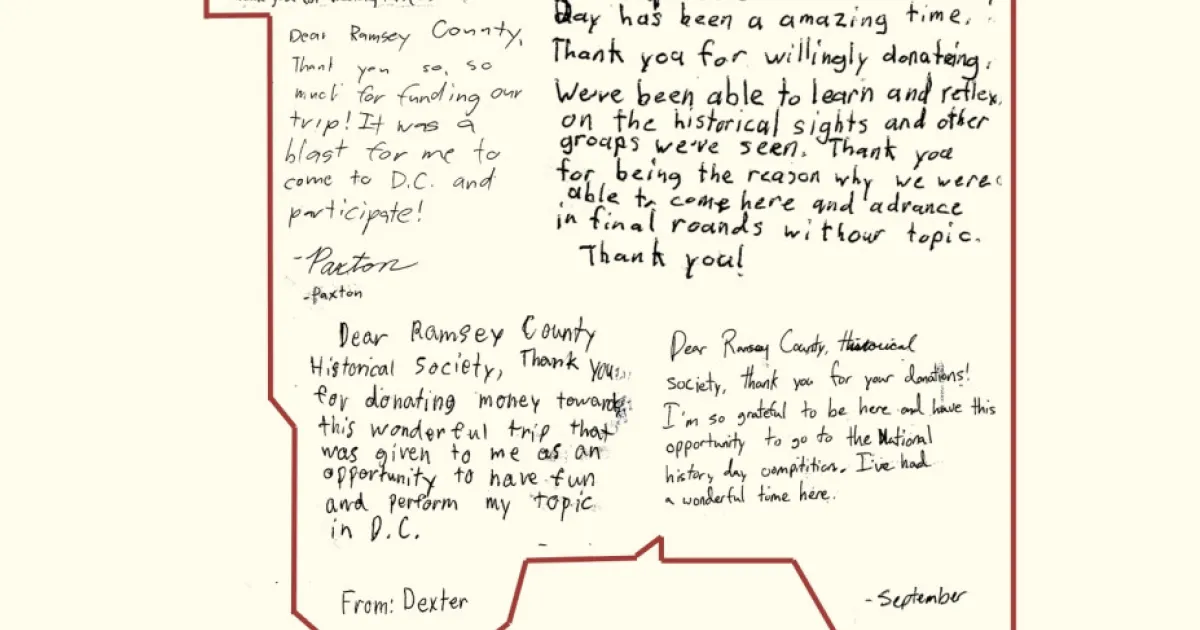 Dear Ramsey County,
Thank you so, so
much for funding our
trip! It was a
blast for me to
come to D.C. and
participate!
-Paxton
-Paxton
Day has been a amazing time.
Thank you for willingly donateing.
We've been able to learn and reflex
on the historical sights and other
groups we've seen. Thank you
for being the reason why we were
able to come here and advance
in final rounds withour topic.
Thank you!
Dear Ramsey County
Historical Society, Thank you
for donating money towards
this wonderful trip that
was given to me as an
opportunity to have fun
and perform my topic
in D.C.
From: Dexter
Dear Ramsey County, Historical
society, thank you for your donations!
I'm so grateful to be here and have this
opportunity to go to the National
history day compitition. I've had
a wonderful time here.
-September